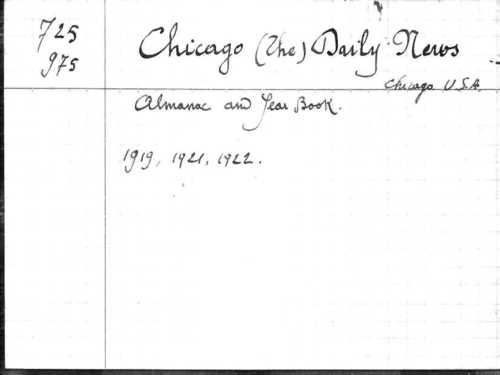 725
975
Chicago (The) Daily News
Chicago U.S.A.
Almanac and Year Book.
1919, 1921, 1922.